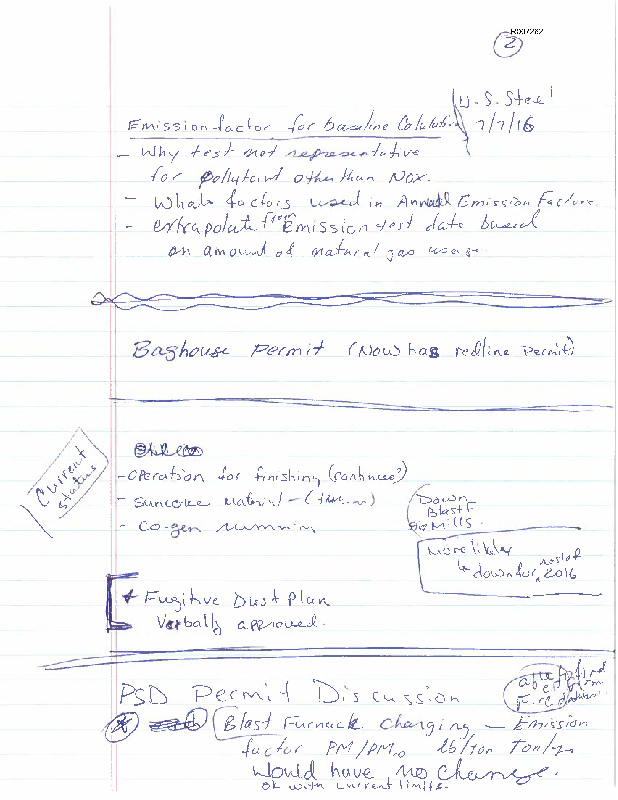 R007262
2
U.S. Steel
7/7/16
Emission factor for baseline Calulation
- Why test not representative
for pollutant other than NOx.
- Whats factors used in Annual Emission Factors.
- extrapolate from Emission test data based
on amount of natural gas usage.
Baghouse Permit (Now) has redline Permit)
Current
status
- Operation for finishing (continues?)
- Suncoke Material - (
- Co-gen running
Down
Blast F
Mills.
More likely
down for rest of 2016
* Fugitive Dust Plan
Verbally approved.
PSD Permit Discussion
Blast Furnace Charging - Emission
factor PM/PM10 lb/ton Ton/yr
Would have no change.
ok with current limits.